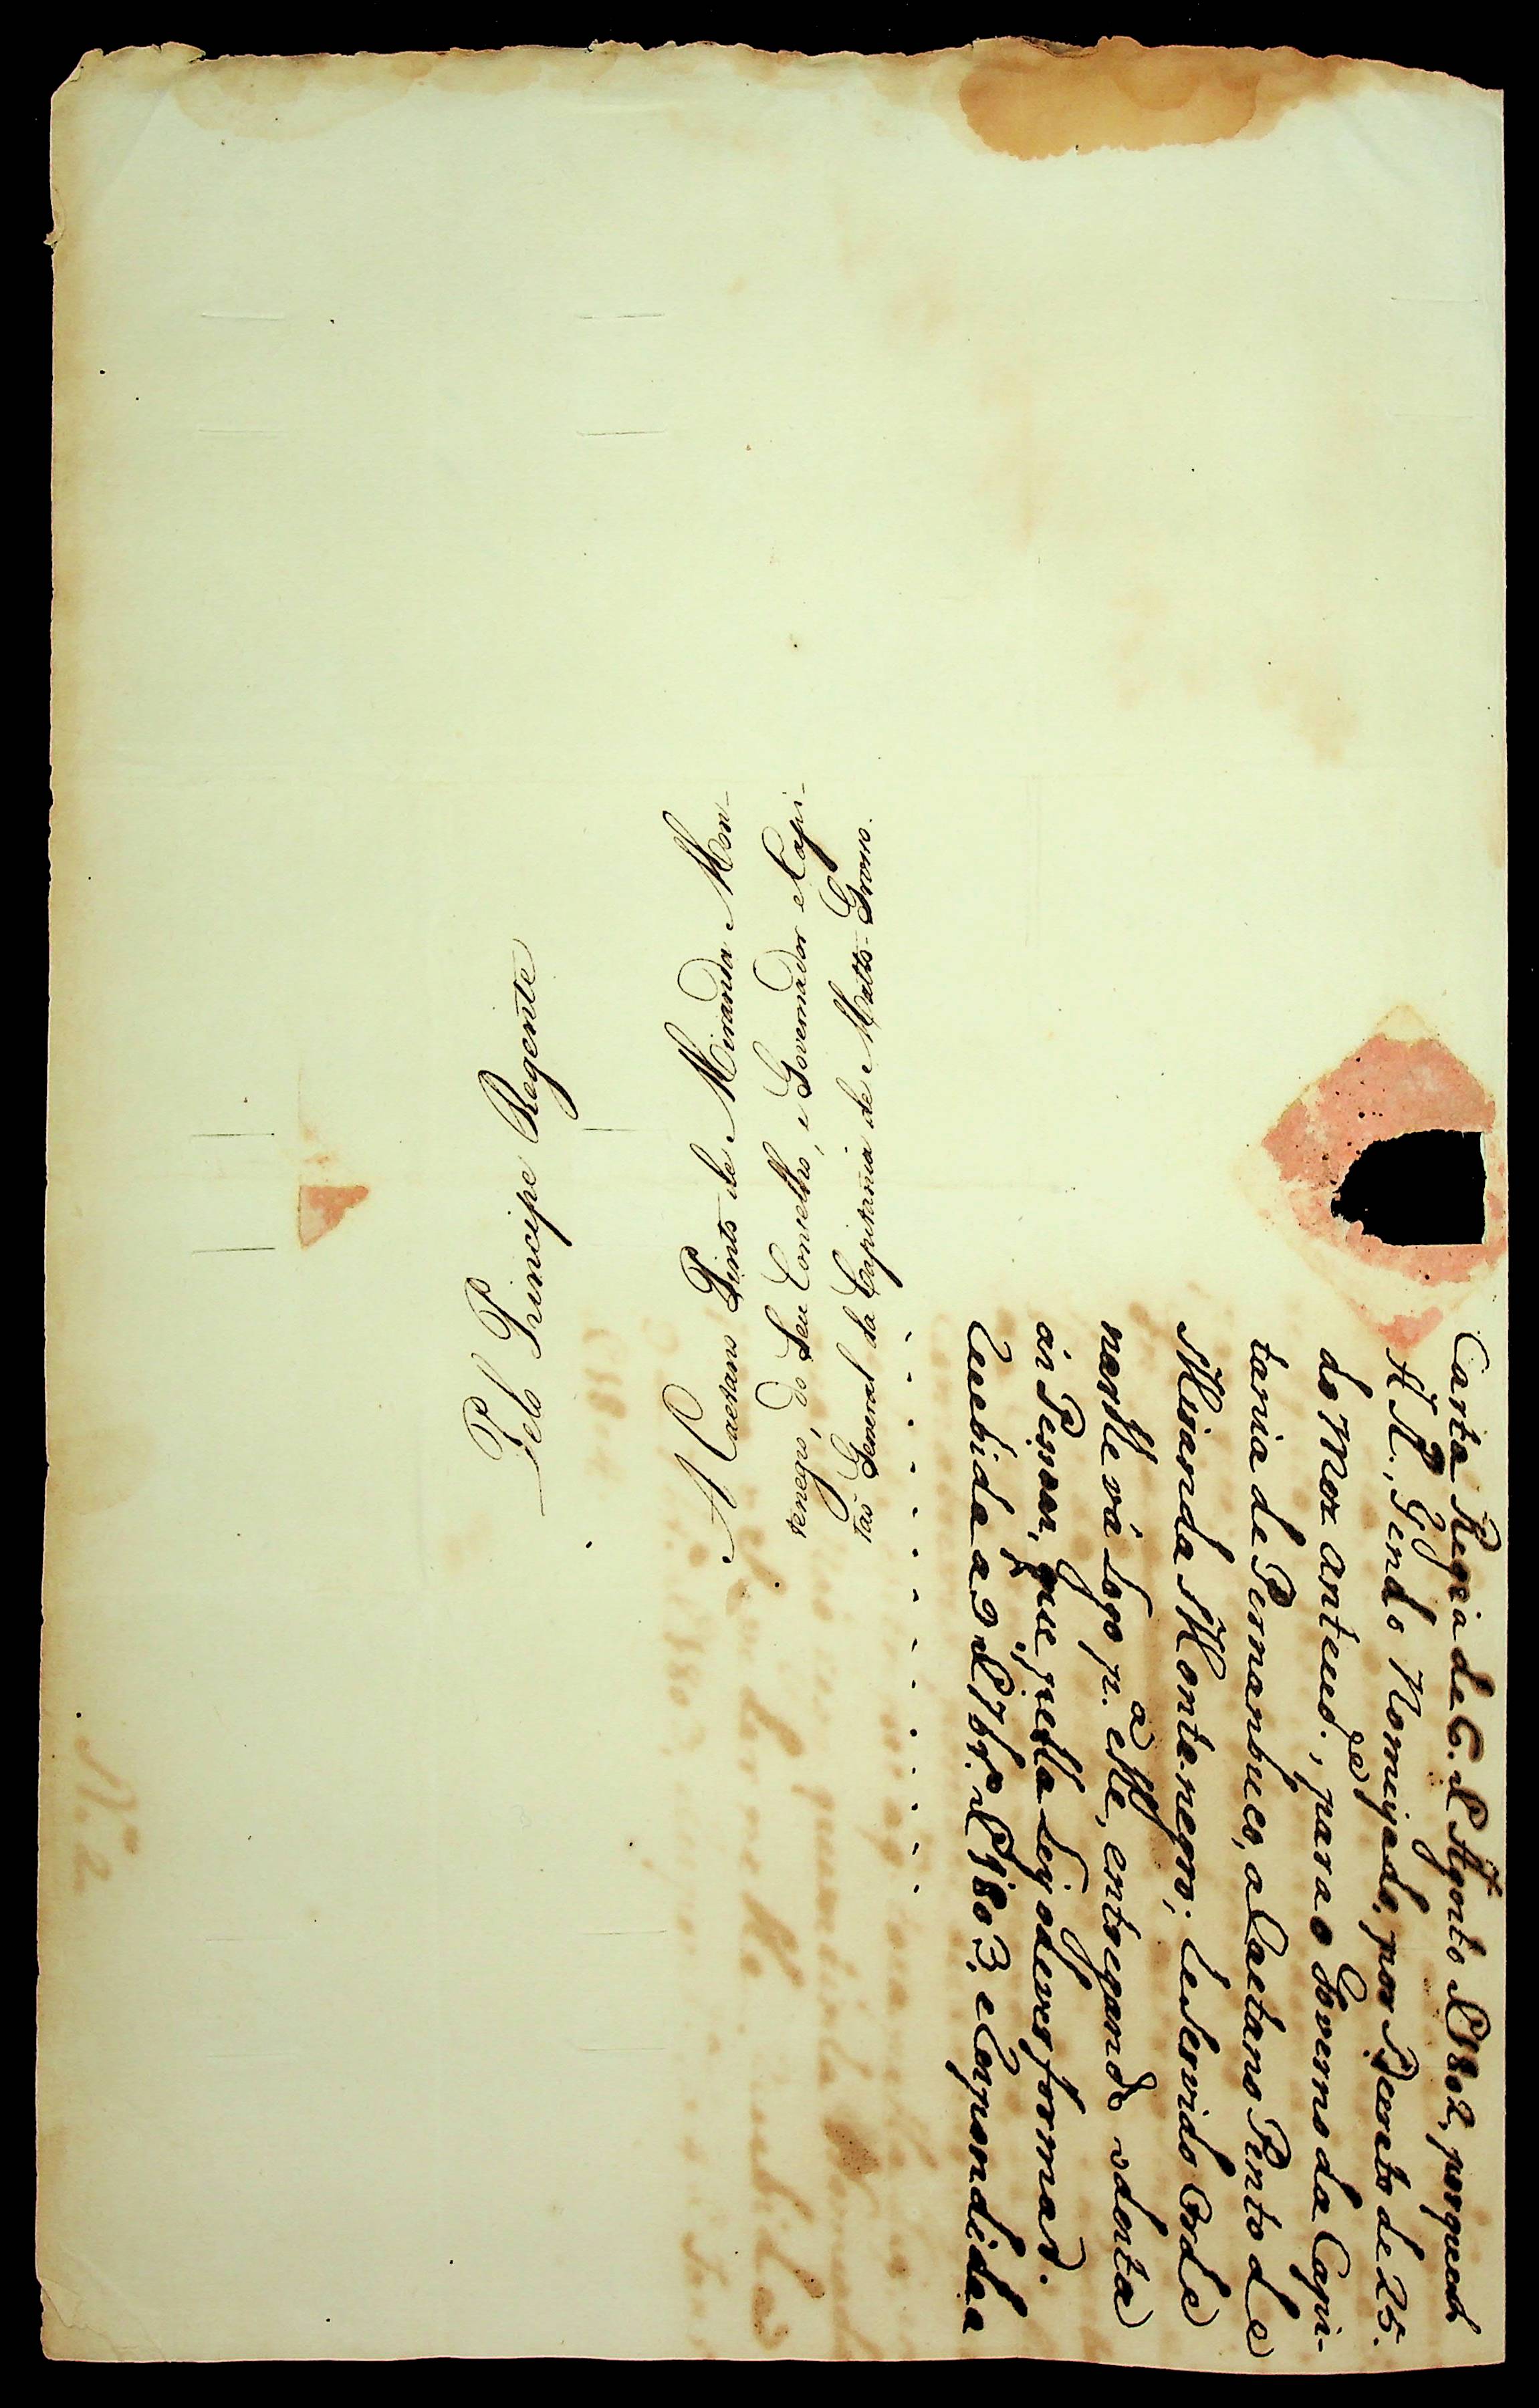 Pelo Principe Regente
A Caetano Pinto de Miranda Mon-
tenegro, do Seu Conselho, e Governador e Capi-
taõ General da Capitania de Matto-Grosso.
Carta Regia de 6. d'Agosto d'1802, porque
A. R., tendo Nomeyado, por Decreto de 25.
do Mez anteced.e, para o Governo da Capi-
tania de Pernanbuco, a Caetano Pinto de
Miranda Montenegro; he servido Orde
nar lhe vá logo p.a elle, entregando o desta
ás Pessoas, que pella Ley o devem formar.
Recebida a 9 d'7br.o d'1803, e Respondida a
N. 2